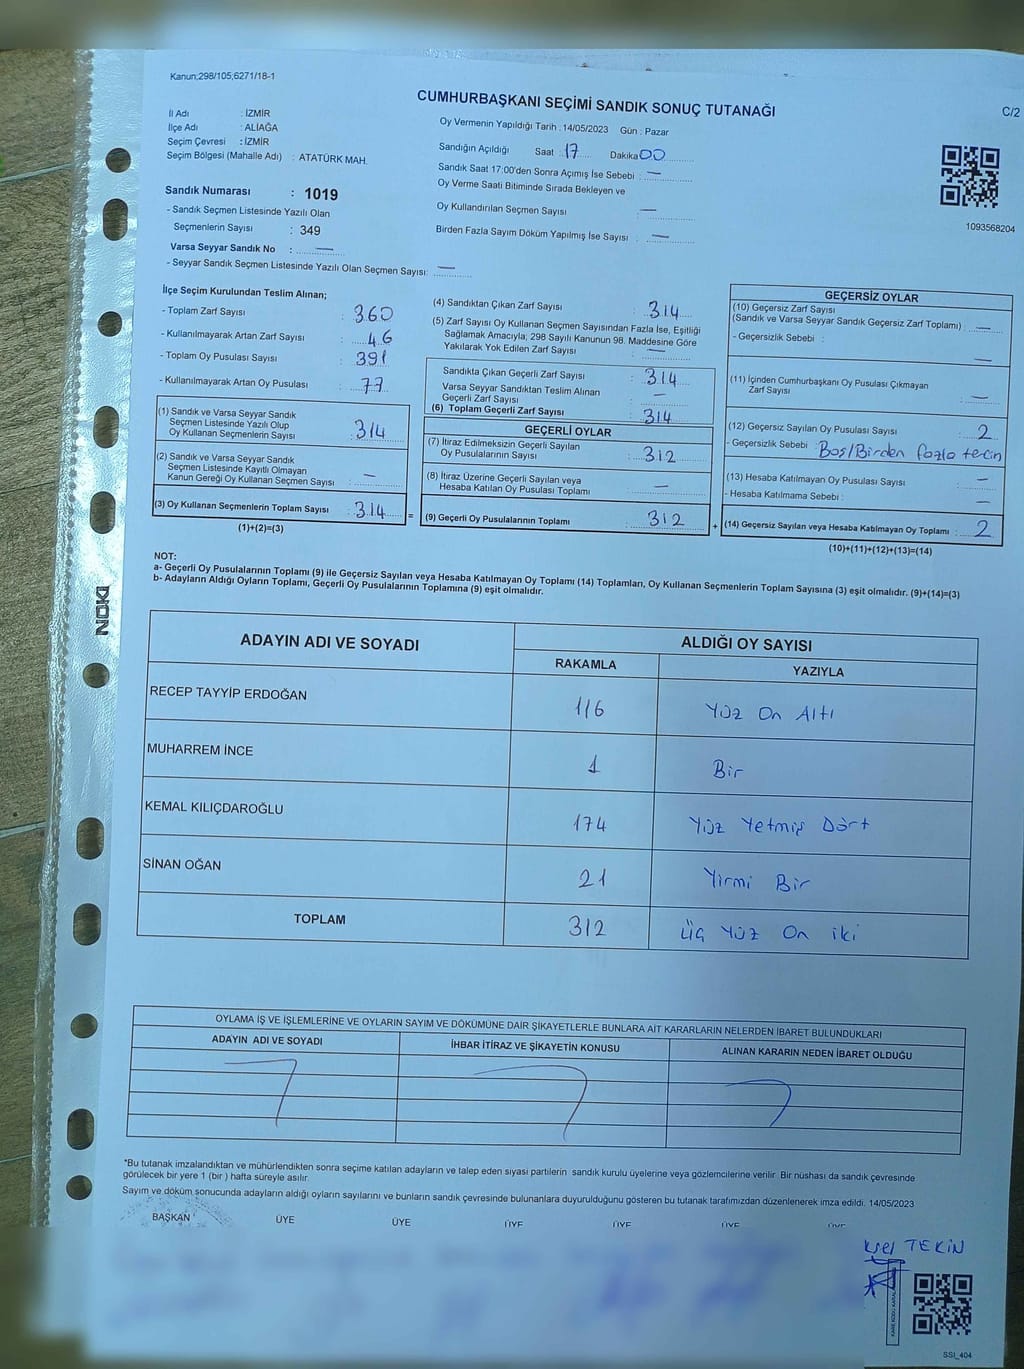 Kanun;298/105,6271/18-1
CUMHURBAŞKANI SEÇİMİ SANDIK SONUÇ TUTANAĞI
C/2
İl Adı : İZMİR
İlçe Adı : ALİAĞA
Seçim Çevresi : İZMİR
Seçim Bölgesi (Mahalle Adı) : ATATÜRK MAH.
Oy Vermenin Yapıldığı Tarih : 14/05/2023 Gün : Pazar
Sandığın Açıldığı Saat 17 Dakika 00
Sandık Saat 17:00'den Sonra Açımış İse Sebebi : —
Oy Verme Saati Bitiminde Sırada Bekleyen ve
Oy Kullandırılan Seçmen Sayısı : —
Birden Fazla Sayım Döküm Yapılmış İse Sayısı : —
1093568204
Sandık Numarası : 1019
- Sandık Seçmen Listesinde Yazılı Olan
Seçmenlerin Sayısı : 349
Varsa Seyyar Sandık No : —
- Seyyar Sandık Seçmen Listesinde Yazılı Olan Seçmen Sayısı: —
İlçe Seçim Kurulundan Teslim Alınan;
- Toplam Zarf Sayısı : 360
- Kullanılmayarak Artan Zarf Sayısı : 46
- Toplam Oy Pusulası Sayısı : 391
- Kullanılmayarak Artan Oy Pusulası : 77
(1) Sandık ve Varsa Seyyar Sandık
Seçmen Listesinde Yazılı Olup
Oy Kullanan Seçmenlerin Sayısı : 314
(2) Sandık ve Varsa Seyyar Sandık
Seçmen Listesinde Kayıtlı Olmayan
Kanun Gereği Oy Kullanan Seçmen Sayısı : —
(3) Oy Kullanan Seçmenlerin Toplam Sayısı : 314
(1)+(2)=(3)
(4) Sandıktan Çıkan Zarf Sayısı : 314
(5) Zarf Sayısı Oy Kullanan Seçmen Sayısından Fazla İse, Eşitliği
Sağlamak Amacıyla; 298 Sayılı Kanunun 98. Maddesine Göre
Yakılarak Yok Edilen Zarf Sayısı : —
Sandıkta Çıkan Geçerli Zarf Sayısı : 314
Varsa Seyyar Sandıktan Teslim Alınan
Geçerli Zarf Sayısı : —
(6) Toplam Geçerli Zarf Sayısı : 314
GEÇERLİ OYLAR
(7) İtiraz Edilmeksizin Geçerli Sayılan
Oy Pusulalarının Sayısı : 312
(8) İtiraz Üzerine Geçerli Sayılan veya
Hesaba Katılan Oy Pusulası Toplamı : —
(9) Geçerli Oy Pusulalarının Toplamı : 312
GEÇERSİZ OYLAR
(10) Geçersiz Zarf Sayısı
(Sandık ve Varsa Seyyar Sandık Geçersiz Zarf Toplamı) : —
- Geçersizlik Sebebi : —
(11) İçinden Cumhurbaşkanı Oy Pusulası Çıkmayan
Zarf Sayısı : —
(12) Geçersiz Sayılan Oy Pusulası Sayısı : 2
- Geçersizlik Sebebi : Boş/Birden fazla tercin
(13) Hesaba Katılmayan Oy Pusulası Sayısı : —
- Hesaba Katılmama Sebebi : —
(14) Geçersiz Sayılan veya Hesaba Katılmayan Oy Toplamı : 2
(10)+(11)+(12)+(13)=(14)
NOT:
a- Geçerli Oy Pusulalarının Toplamı (9) ile Geçersiz Sayılan veya Hesaba Katılmayan Oy Toplamı (14) Toplamları, Oy Kullanan Seçmenlerin Toplam Sayısına (3) eşit olmalıdır. (9)+(14)=(3)
b- Adayların Aldığı Oyların Toplamı, Geçerli Oy Pusulalarının Toplamına (9) eşit olmalıdır.
NOKI
ADAYIN ADI VE SOYADI ALDIĞI OY SAYISI
RAKAMLA YAZIYLA
RECEP TAYYİP ERDOĞAN 116 Yüz On Altı
MUHARREM İNCE 1 Bir
KEMAL KILIÇDAROĞLU 174 Yüz Yetmiş Dört
SİNAN OĞAN 21 Yirmi Bir
TOPLAM 312 Üç Yüz On iki
OYLAMA İŞ VE İŞLEMLERİNE VE OYLARIN SAYIM VE DÖKÜMÜNE DAİR ŞİKAYETLERLE BUNLARA AİT KARARLARIN NELERDEN İBARET BULUNDUKLARI
ADAYIN ADI VE SOYADI İHBAR İTİRAZ VE ŞİKAYETİN KONUSU ALINAN KARARIN NEDEN İBARET OLDUĞU
*Bu tutanak imzalandıktan ve mühürlendikten sonra seçime katılan adayların ve talep eden siyasi partilerin sandık kurulu üyelerine veya gözlemcilerine verilir. Bir nüshası da sandık çevresinde
görülecek bir yere 1 (bir ) hafta süreyle asılır.
Sayım ve döküm sonucunda adayların aldığı oyların sayılarını ve bunların sandık çevresinde bulunanlara duyurulduğunu gösteren bu tutanak tarafımızdan düzenlenerek imza edildi. 14/05/2023
BAŞKAN ÜYE ÜYE ÜYE ÜYE ÜYE ÜYE
TEKİN
SSI_404